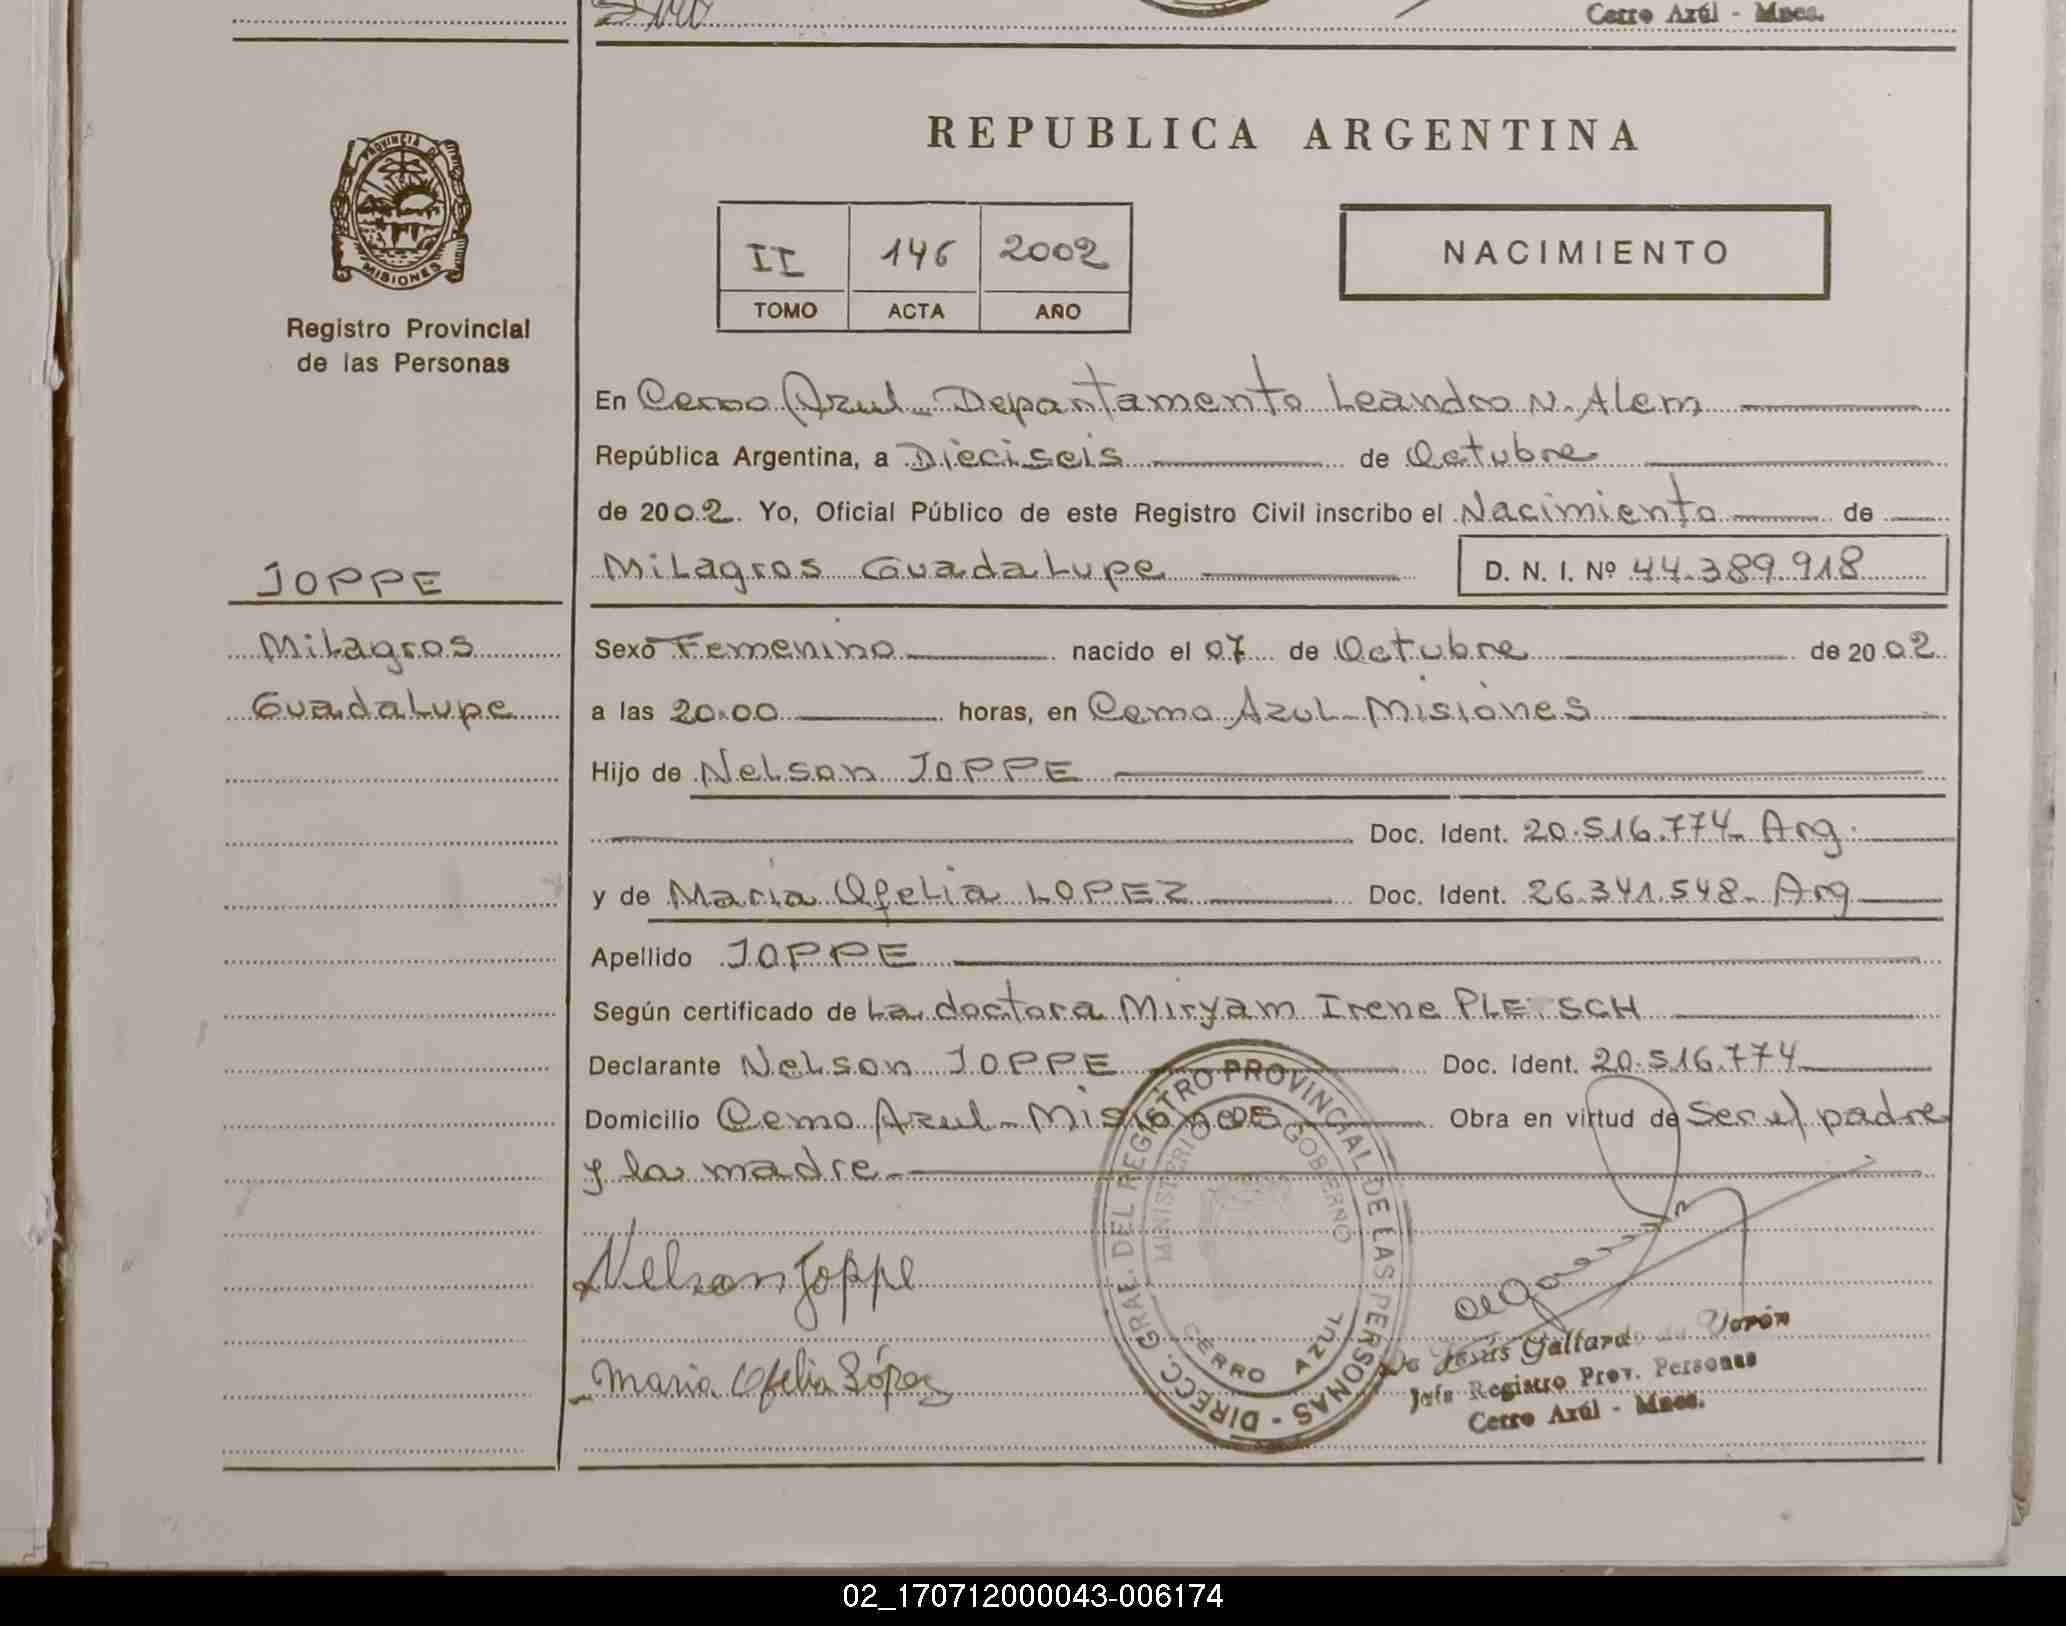 Cerro Azúl - Mnes.
PROVINCIA DE
MISIONES
Registro Provincial
de las Personas
REPUBLICA ARGENTINA
II 146 2002
TOMO ACTA AÑO
NACIMIENTO
En Cerro Azul - Departamento Leandro N. Alem
República Argentina, a Dieciseis de Octubre
de 2002. Yo, Oficial Público de este Registro Civil inscribo el Nacimiento de
Milagros Guadalupe D. N. I. Nº 44.389.918
JOPPE
Milagros
Guadalupe
Sexo Femenino nacido el 07 de Octubre de 2002
a las 20.00 horas, en Cerro Azul - Misiones
Hijo de Nelson JOPPE
Doc. Ident. 20.516.774 - Arg.
y de Maria Ofelia LOPEZ Doc. Ident. 26.341.548 - Arg
Apellido JOPPE
Según certificado de La doctora Miryam Irene PLEISCH
Declarante Nelson JOPPE Doc. Ident. 20.516.774
Domicilio Cerro Azul - Misiones Obra en virtud de Ser el padre
y la madre.
DIRECC. GRAL. DEL REGISTRO PROVINCIAL DE LAS PERSONAS -
MINISTERIO DE GOBERNO
CERRO AZUL
Nelson Joppe
Maria Ofelia López
Jesús Gallardo de Verón
Jefa Registro Prov. Personas
Cerro Azúl - Mnes.
02_170712000043-006174